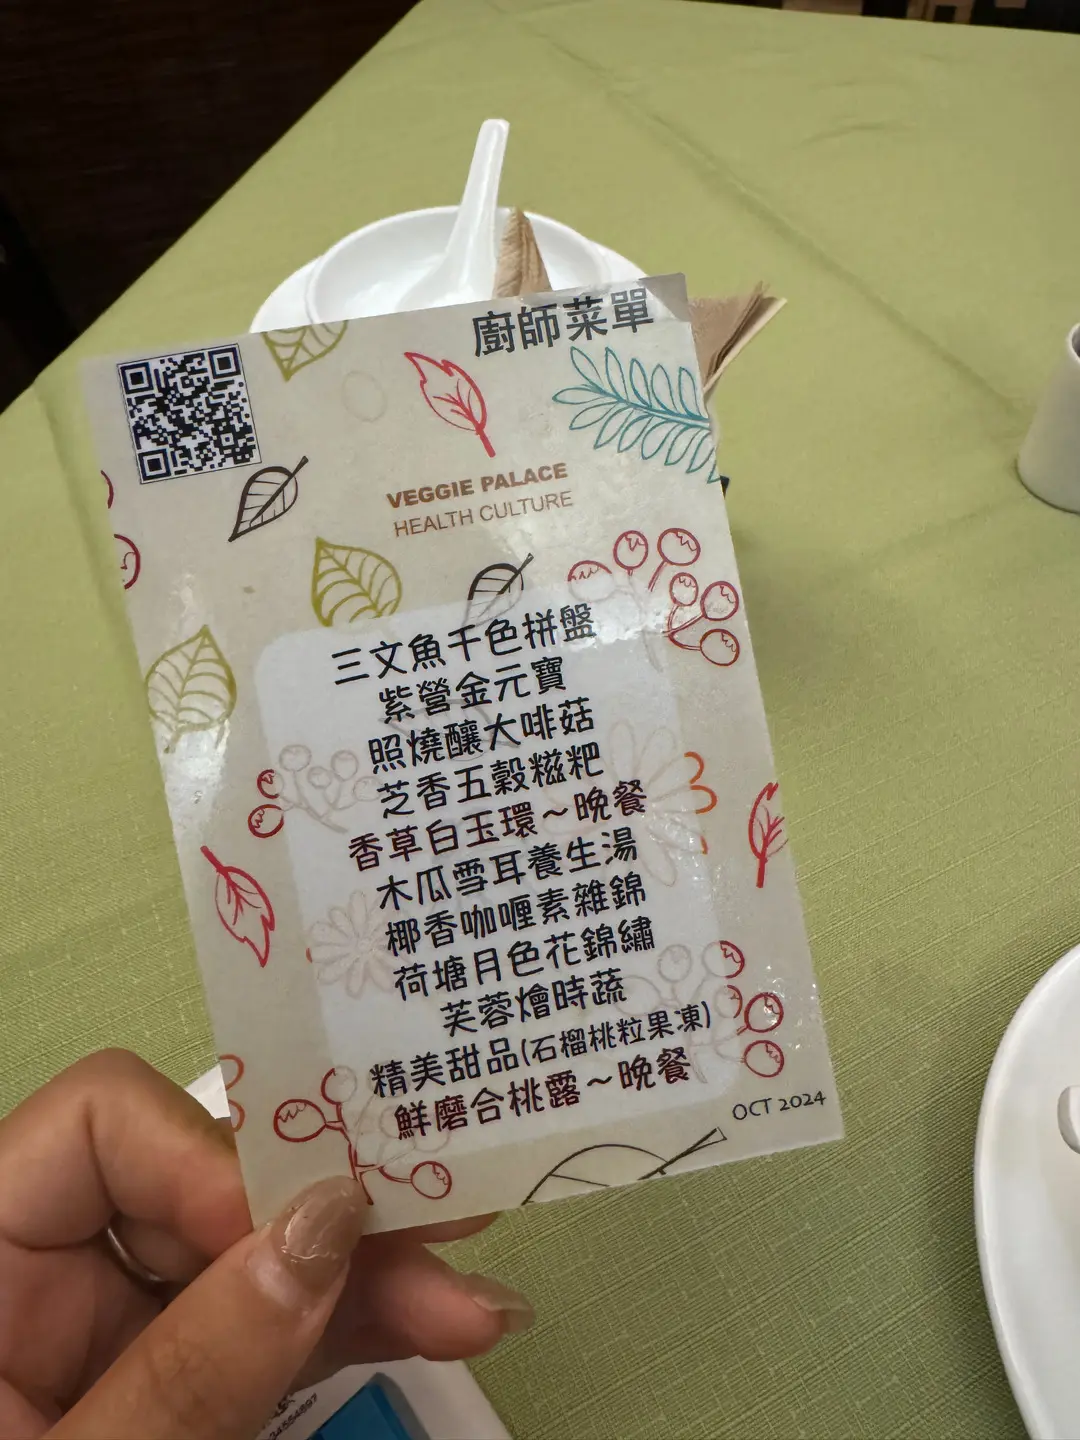 廚師菜單
VEGGIE PALACE
HEALTH CULTURE
三文魚千色拼盤
紫營金元寶
照燒釀大啡菇
芝香五穀糍粑
香草白玉環~晚餐
木瓜雪耳養生湯
椰香咖喱素雜錦
荷塘月色花錦繡
芙蓉燴時蔬
精美甜品(石榴桃粒果凍)
鮮磨合桃露~晚餐
OCT 2024